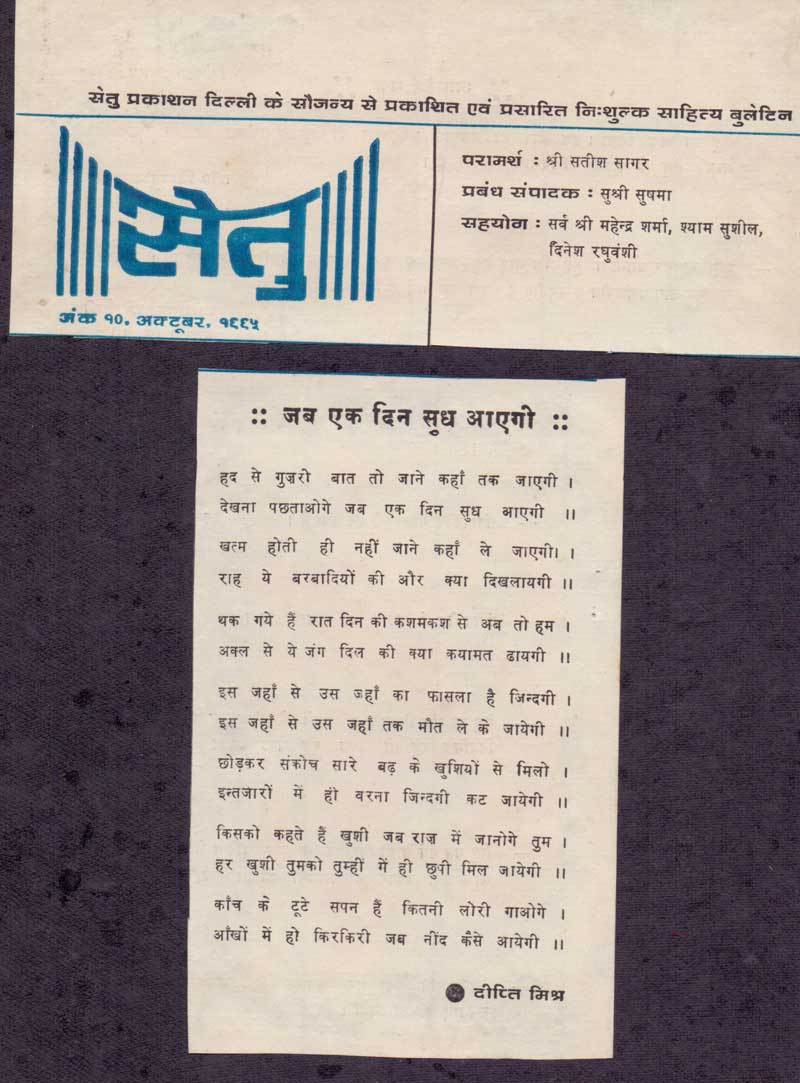 सेतु प्रकाशन दिल्ली के सौजन्य से प्रकाशित एवं प्रसारित निःशुल्क साहित्य बुलेटिन
सेतु
अंक १०, अक्टूबर, १९९५
परामर्श : श्री सतीश सागर
प्रबंध संपादक : सुश्री सुषमा
सहयोग : सर्व श्री महेन्द्र शर्मा, श्याम सुशील,
दिनेश रघुवंशी
:: जब एक दिन सुध आएगी ::
हद से गुज़री बात तो जाने कहाँ तक जाएगी ।
देखना पछताओगे जब एक दिन सुध आएगी ।।
खत्म होती ही नहीं जाने कहाँ ले जाएगी। ।
राह ये बरबादियों की और क्या दिखलायगी ।।
थक गये हैं रात दिन की कशमकश से अब तो हम ।
अक्ल से ये जंग दिल की क्या कयामत ढायगी ।।
इस जहाँ से उस जहाँ का फासला है जिन्दगी ।
इस जहाँ से उस जहाँ तक मौत ले के जायेगी ।।
छोड़कर संकोच सारे बढ़ के खुशियों से मिलो ।
इन्तजारों में ही वरना जिन्दगी कट जायेगी ।।
किसको कहते हैं खुशी जब राज़ में जानोगे तुम ।
हर खुशी तुमको तुम्हीं में ही छुपी मिल जायेगी ।।
काँच के टूटे सपन हैं कितनी लोरी गाओगे ।
आँखों में हो किरकिरी जब नींद कैसे आयेगी ।।
दीप्ति मिश्र